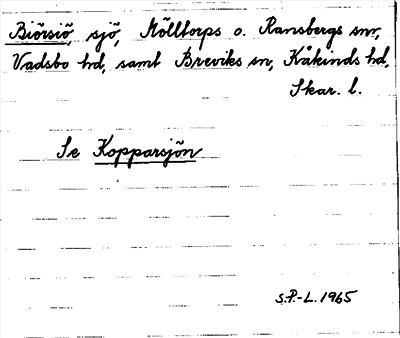 Biörsiö, sjö, Mölltorps o. Ransbergs snr,
Vadsbo hd, samt Breviks sn, Kåkinds hd,
Skar. l.
Se Kopparsjön
S.P.-L. 1965